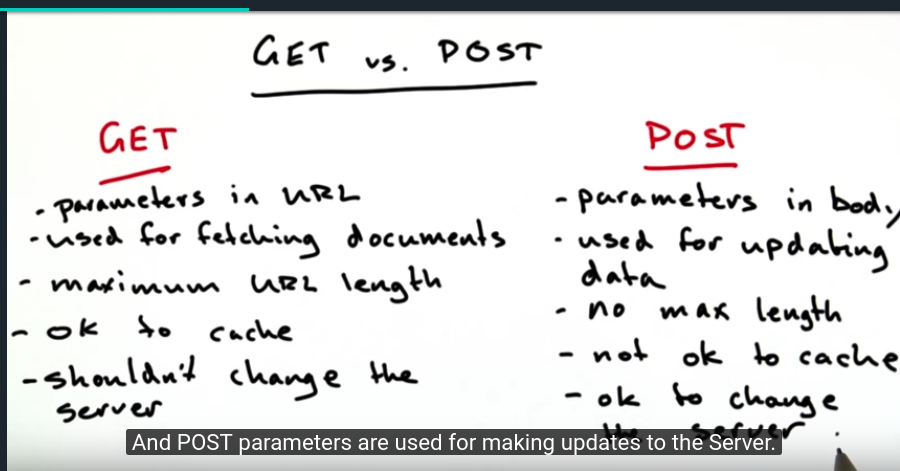 GET vs. POST
GET
- parameters in URL
- used for fetching documents
- maximum URL length
- ok to cache
- shouldn't change the
server
POST
- parameters in body
- used for updating
data
- no max length
- not ok to cache
- ok to change
the server
And POST parameters are used for making updates to the Server.